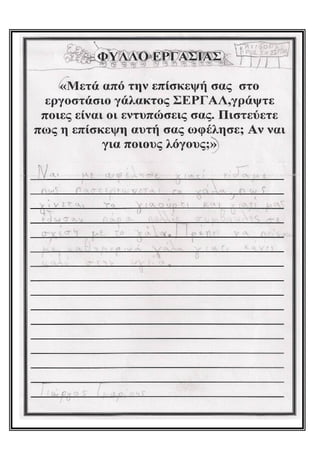 ΦΥΛΛΟ ΕΡΓΑΣΙΑΣ
«Μετά από την επίσκεψή σας στο
εργοστάσιο γάλακτος ΣΕΡΓΑΛ,γράψτε
ποιες είναι οι εντυπώσεις σας. Πιστεύετε
πως η επίσκεψη αυτή σας ωφέλησε; Αν ναι
για ποιους λόγους;»
Ναι με ωφέλησε γιατί είδαμε
πως παστεριώνεται το γάλα, πως
γίνεται το γιαούρτι και γιατί μας
έδωσαν πάρα πολλές συμβουλές σε
σχέση με το γάλα. Πρέπει να
καθημερινά γάλα γιατί κάνει
καλό στην υγεία.
Γιώργος